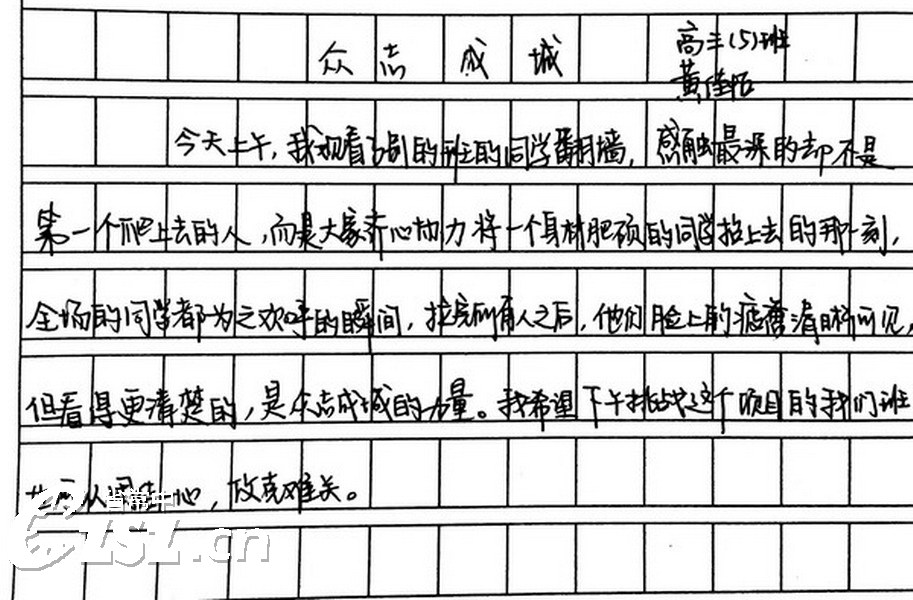 众志成城 高三(5)班
黄佳怡
今天上午,我观看了别的班的同学翻墙,感触最深的却不是
第一个爬上去的人,而是大家齐心协力将一个身材肥硕的同学抬上去的那一刻,
全场的同学都为之欢呼的瞬间,拉完所有人之后,他们脸上的疲惫清晰可见,
但看得更清楚的,是众志成城的力量。我希望下午挑战这个项目的我们班
心,攻克难关。
.cn